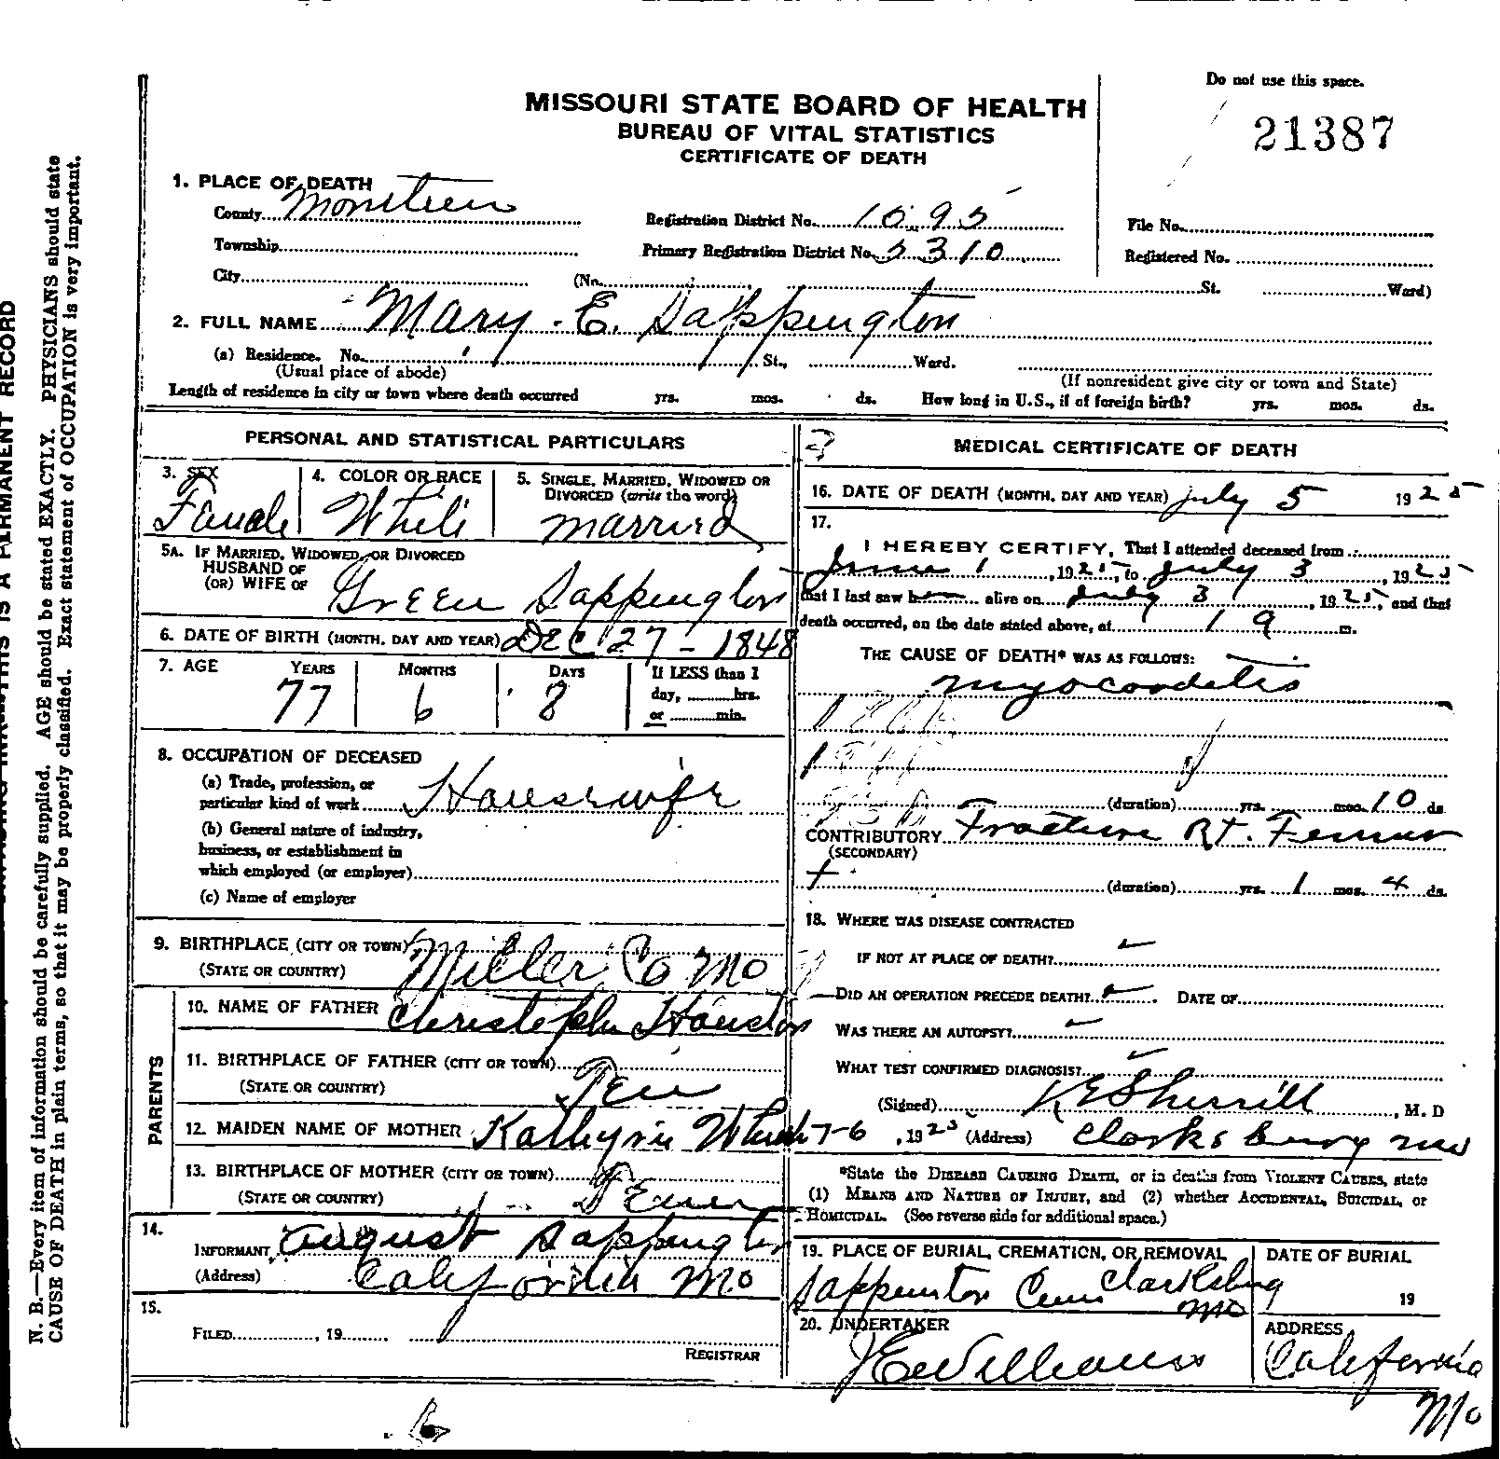 Do not use this space.
MISSOURI STATE BOARD OF HEALTH
BUREAU OF VITAL STATISTICS
CERTIFICATE OF DEATH
21387
1. PLACE OF DEATH
County Moniteau
Registration District No. 1095
File No.
Township
Primary Registration District No. 5310
Registered No.
City (No. St. Ward)
2. FULL NAME Mary E. Sappington
(a) Residence. No. St., Ward.
(Usual place of abode) (If nonresident give city or town and State)
Length of residence in city or town where death occurred yrs. mos. ds. How long in U.S., if of foreign birth? yrs. mos. ds.
PERSONAL AND STATISTICAL PARTICULARS
3. SEX
Female
4. COLOR OR RACE
White
5. SINGLE, MARRIED, WIDOWED OR DIVORCED (write the word)
married
5A. IF MARRIED, WIDOWED, OR DIVORCED
HUSBAND OF
(OR) WIFE OF Green Sappington
6. DATE OF BIRTH (MONTH, DAY AND YEAR) DEC 27 - 1848
7. AGE YEARS MONTHS DAYS If LESS than 1
77 6 8 day, hrs.
or min.
8. OCCUPATION OF DECEASED
(a) Trade, profession, or
particular kind of work Housewife
(b) General nature of industry,
business, or establishment in
which employed (or employer)
(c) Name of employer
9. BIRTHPLACE (CITY OR TOWN) Miller Co Mo
(STATE OR COUNTRY)
PARENTS
10. NAME OF FATHER Christopher Houston
11. BIRTHPLACE OF FATHER (CITY OR TOWN)
(STATE OR COUNTRY) Ten
12. MAIDEN NAME OF MOTHER Kathyrn
13. BIRTHPLACE OF MOTHER (CITY OR TOWN)
(STATE OR COUNTRY)
14.
INFORMANT August Sappington
(Address) California Mo
15.
FILED , 19
REGISTRAR
MEDICAL CERTIFICATE OF DEATH
16. DATE OF DEATH (MONTH, DAY AND YEAR) July 5 1925
17.
I HEREBY CERTIFY, That I attended deceased from
June 1, 1925, to July 3, 1925
that I last saw h alive on July 3, 1925, and that
death occurred, on the date stated above, at 1 9 m.
THE CAUSE OF DEATH* WAS AS FOLLOWS:
myocordetis
(duration) yrs. mos. 10 ds.
CONTRIBUTORY Fracture Rt. Femur
(SECONDARY)
(duration) yrs. 1 mos. 4 ds.
18. WHERE WAS DISEASE CONTRACTED
IF NOT AT PLACE OF DEATH?
DID AN OPERATION PRECEDE DEATH? DATE OF
WAS THERE AN AUTOPSY?
WHAT TEST CONFIRMED DIAGNOSIS?
(Signed) Sherrill, M. D
7-6, 192 (Address) Clarksburg Mo
*State the DISEASE CAUSING DEATH, or in deaths from VIOLENT CAUSES, state
(1) MEANS AND NATURE OF INJURY, and (2) whether ACCIDENTAL, SUICIDAL, or
HOMICIDAL. (See reverse side for additional space.)
19. PLACE OF BURIAL, CREMATION, OR REMOVAL
Sappington Cem Clarksburg Mo
DATE OF BURIAL
19
20. UNDERTAKER
J E Williams
ADDRESS
California Mo
N. B.—Every item of information should be carefully supplied. AGE should be stated EXACTLY. PHYSICIANS should state
CAUSE OF DEATH in plain terms, so that it may be properly classified. Exact statement of OCCUPATION is very important.
THIS IS A PERMANENT RECORD